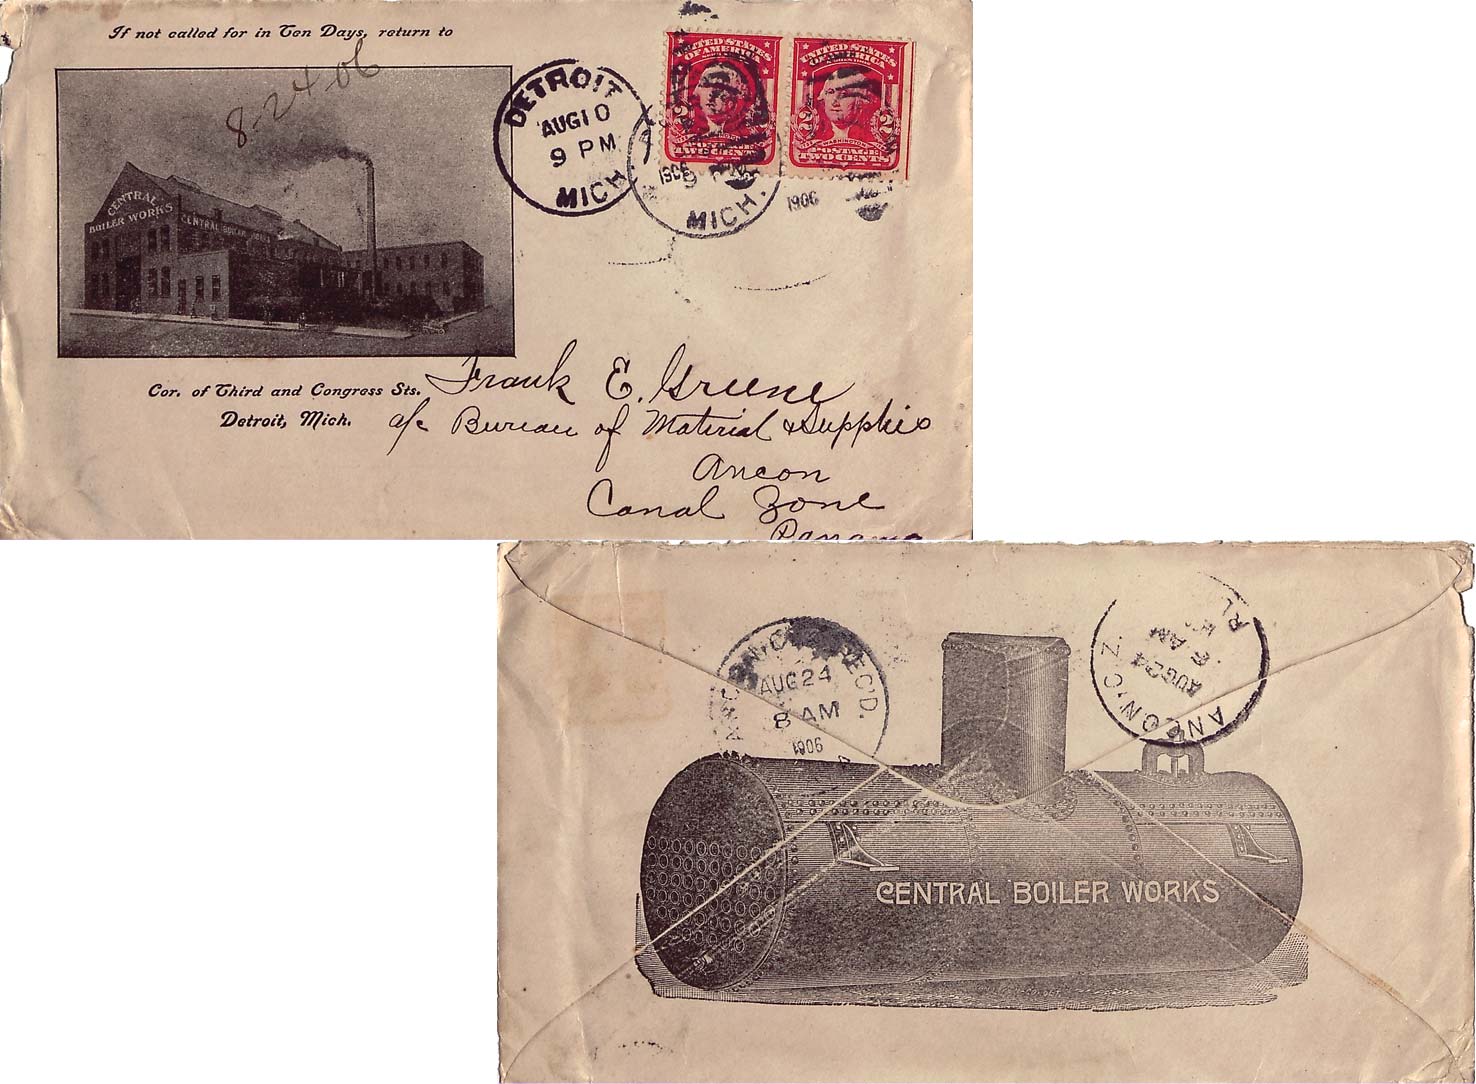 If not called for in Ten Days, return to
8-24-06
CENTRAL
BOILER WORKS
CENTRAL BOILER WORKS
Cor. of Third and Congress Sts.
Detroit, Mich.
DETROIT
AUG 10
9 PM
MICH.
1906
MICH.
1906
UNITED STATES
OF AMERICA
2
TWO CENTS
UNITED STATES
OF AMERICA
2 2
WASHINGTON
POSTAGE
TWO CENTS
Frank E. Greene
c/o Bureau of Material & Supplies
Ancon
Canal Zone
Panama
REC'D.
AUG 24
8 AM
1906
ANCON, C. Z.
AUG 24
6 AM
CENTRAL BOILER WORKS